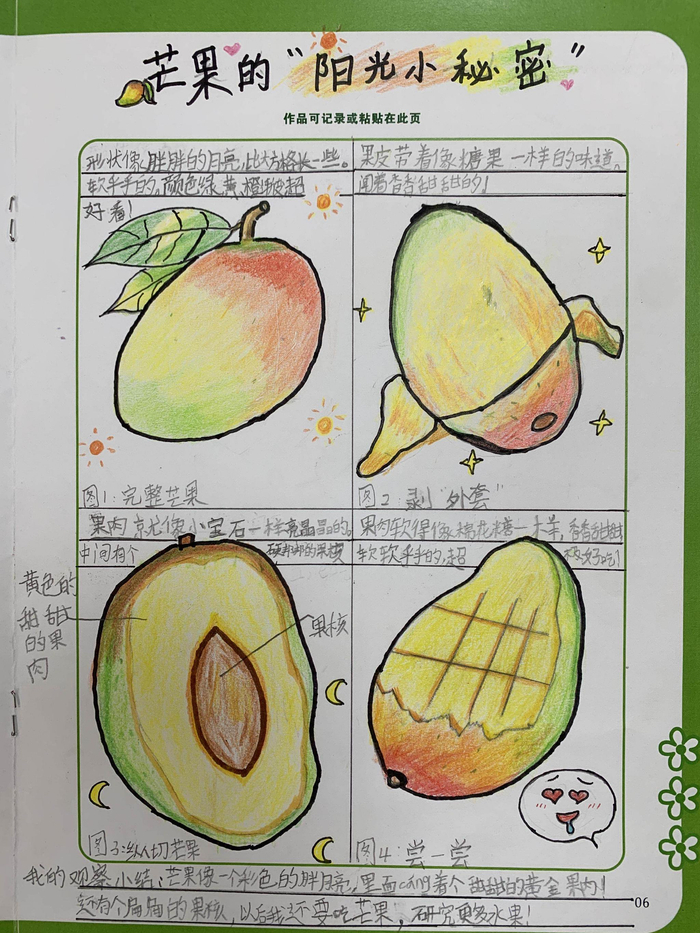 芒果的“阳光小秘密”
作品可记录或粘贴在此页
形状像胖胖的月亮,比方格长一些。
软乎乎的,颜色绿、黄、橙,超
好看!
图1:完整芒果
果皮带着像糖果一样的味道。
闻着香香甜甜的!
图2:剥“外套”
果肉就像小宝石一样亮晶晶的。
中间有个硬邦邦的果核
黄色的
甜甜
的果
肉
果核
图3:纵切芒果
果肉软得像棉花糖一样,香香甜甜
软软乎乎的,超极好吃!
图4:尝一尝
我的观察小结:芒果像一个彩色的胖月亮,里面cáng着个甜甜的黄金果肉!
还有个扁扁的果核,以后我还要吃芒果,研究更多水果!
06